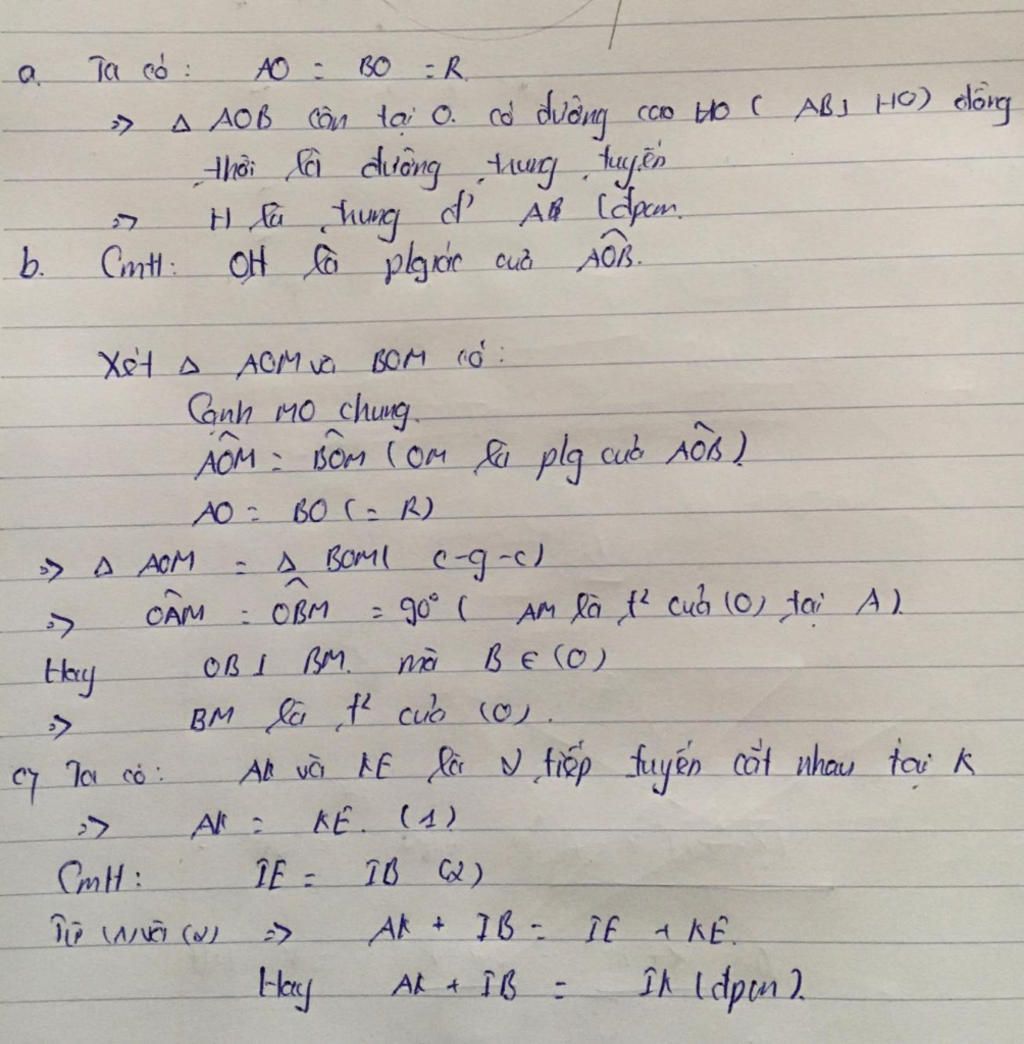 a. Ta có: AO = BO = R.
=> Δ AOB cân tại O. có đường cao HO ( AB⊥ HO) đồng
thời là đường trung tuyến
=> H là trung đ' AB (đpcm.
b. CmH: OH là plgiác của AÔB.
Xét Δ AOM và BOM có:
Cạnh MO chung.
AÔM = BÔM (OM là plg của AÔB).
AO = BO (= R)
=> Δ AOM = Δ BOM( c-g-c)
=> OÂM = OB̂M = 90° ( AM là t² của (O) tại A).
Hay OB⊥ BM. mà B ∈ (O)
=> BM là t² của (O).
c, Ta có: AK và KE là tiếp tuyến cắt nhau tại K
=> AK = KE. (1)
CmH: IE = IB (2)
Từ (1) và (2) => AK + IB = IE + KE.
Hay AK + IB = IK (đpcm).